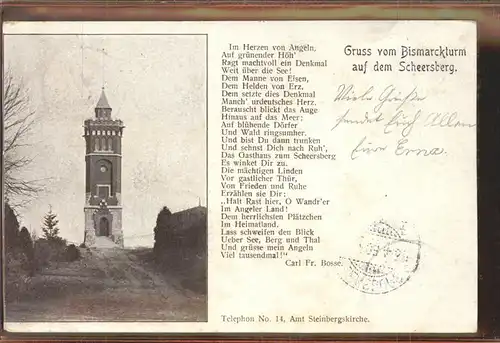 Im Herzen von Angeln,
Auf grünender Höh'
Ragt machtvoll ein Denkmal
Weit über die See!
Dem Manne von Eisen,
Dem Helden von Erz,
Dein setzte dies Denkmal
Manch' urdeutsches Herz.
Berauscht blickt das Auge
Hinaus auf das Meer;
Auf blühende Dörfer
Und Wald ringsumher.
Und bist Du dann trunken
Und sehnst Dich nach Ruh',
Das Gasthaus zum Scheersberg
Es winket Dir zu.
Die mächtigen Linden
Vor gastlicher Thür,
Von Frieden und Ruhe
Erzählen sie Dir;
„Halt Rast hier, O Wandr'er
Im Angeler Land!
Dem herrlichsten Plätzchen
Im Heimatland.
Lass schweifen den Blick
Ueber See, Berg und Thal
Und grüsse mein Angeln
Viel tausendmal!"
Carl Fr. Bosse.
Telephon No. 14, Amt Steinbergskirche.
Gruss vom Bismarckturm
auf dem Scheersberg.
Viele Grüße
sendet Euch Allen
Eure Erna.